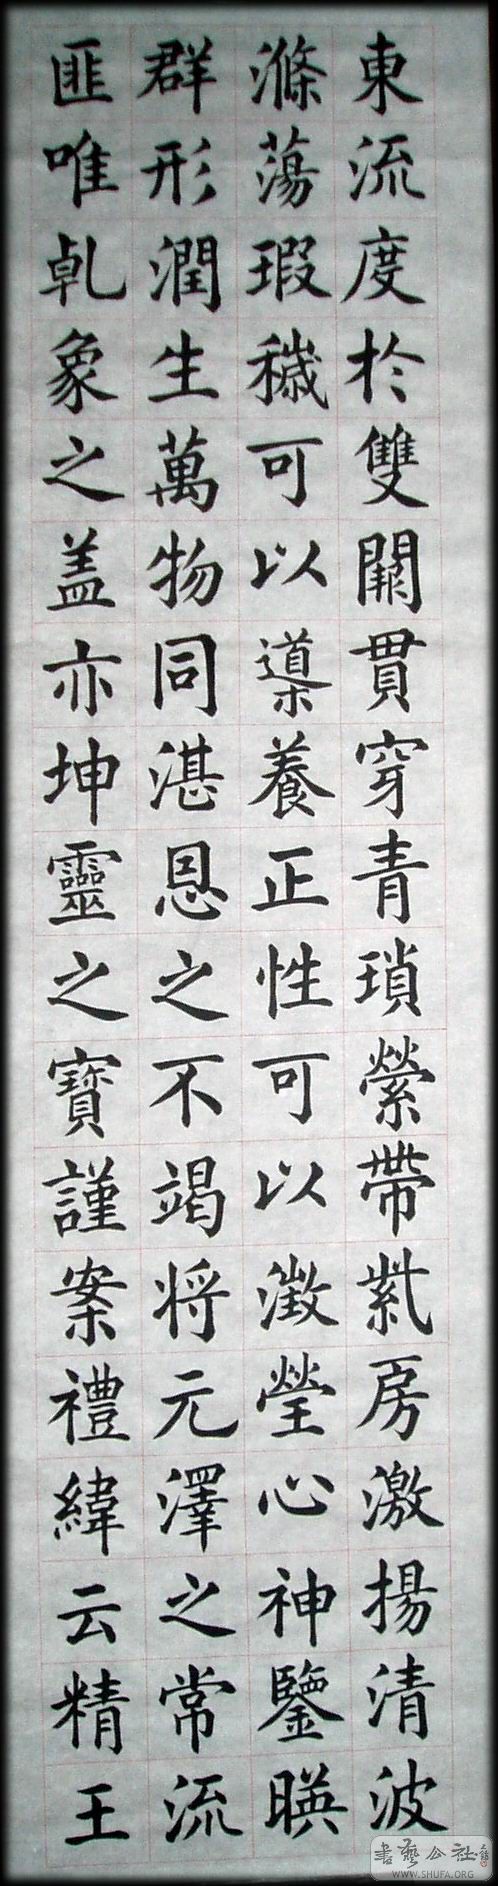 東流度於雙闕貫穿青瑣縈帶紫房激揚清波
滌蕩瑕穢可以導養正性可以澂瑩心神鑒暎
群形潤生萬物同湛恩之不竭将元澤之常流
匪唯乹象之盖亦坤靈之寶謹案禮緯云精王
書藝公社
WWW.SHUFA.ORG